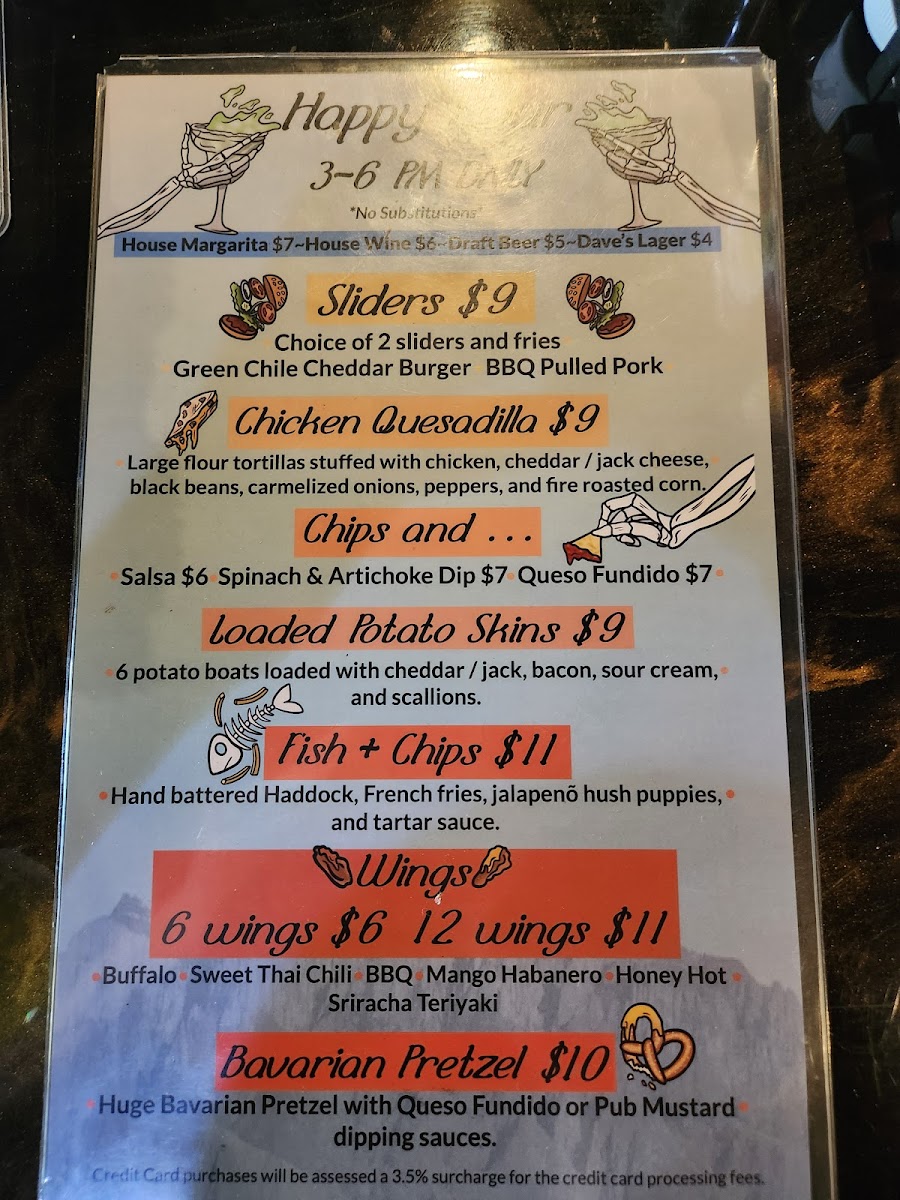 Happy Hour
3-6 PM DAILY
*No Substitutions*
House Margarita $7~House Wine $6~Draft Beer $5~Dave's Lager $4
Sliders $9
Choice of 2 sliders and fries
Green Chile Cheddar Burger BBQ Pulled Pork
Chicken Quesadilla $9
Large flour tortillas stuffed with chicken, cheddar / jack cheese,
black beans, carmelized onions, peppers, and fire roasted corn.
Chips and ...
• Salsa $6 • Spinach & Artichoke Dip $7 • Queso Fundido $7 •
Loaded Potato Skins $9
• 6 potato boats loaded with cheddar / jack, bacon, sour cream, •
and scallions.
Fish + Chips $11
• Hand battered Haddock, French fries, jalapenõ hush puppies, •
and tartar sauce.
Wings
6 wings $6 12 wings $11
• Buffalo • Sweet Thai Chili • BBQ • Mango Habanero • Honey Hot •
Sriracha Teriyaki
Bavarian Pretzel $10
• Huge Bavarian Pretzel with Queso Fundido or Pub Mustard •
dipping sauces.
Credit Card purchases will be assessed a 3.5% surcharge for the credit card processing fees.